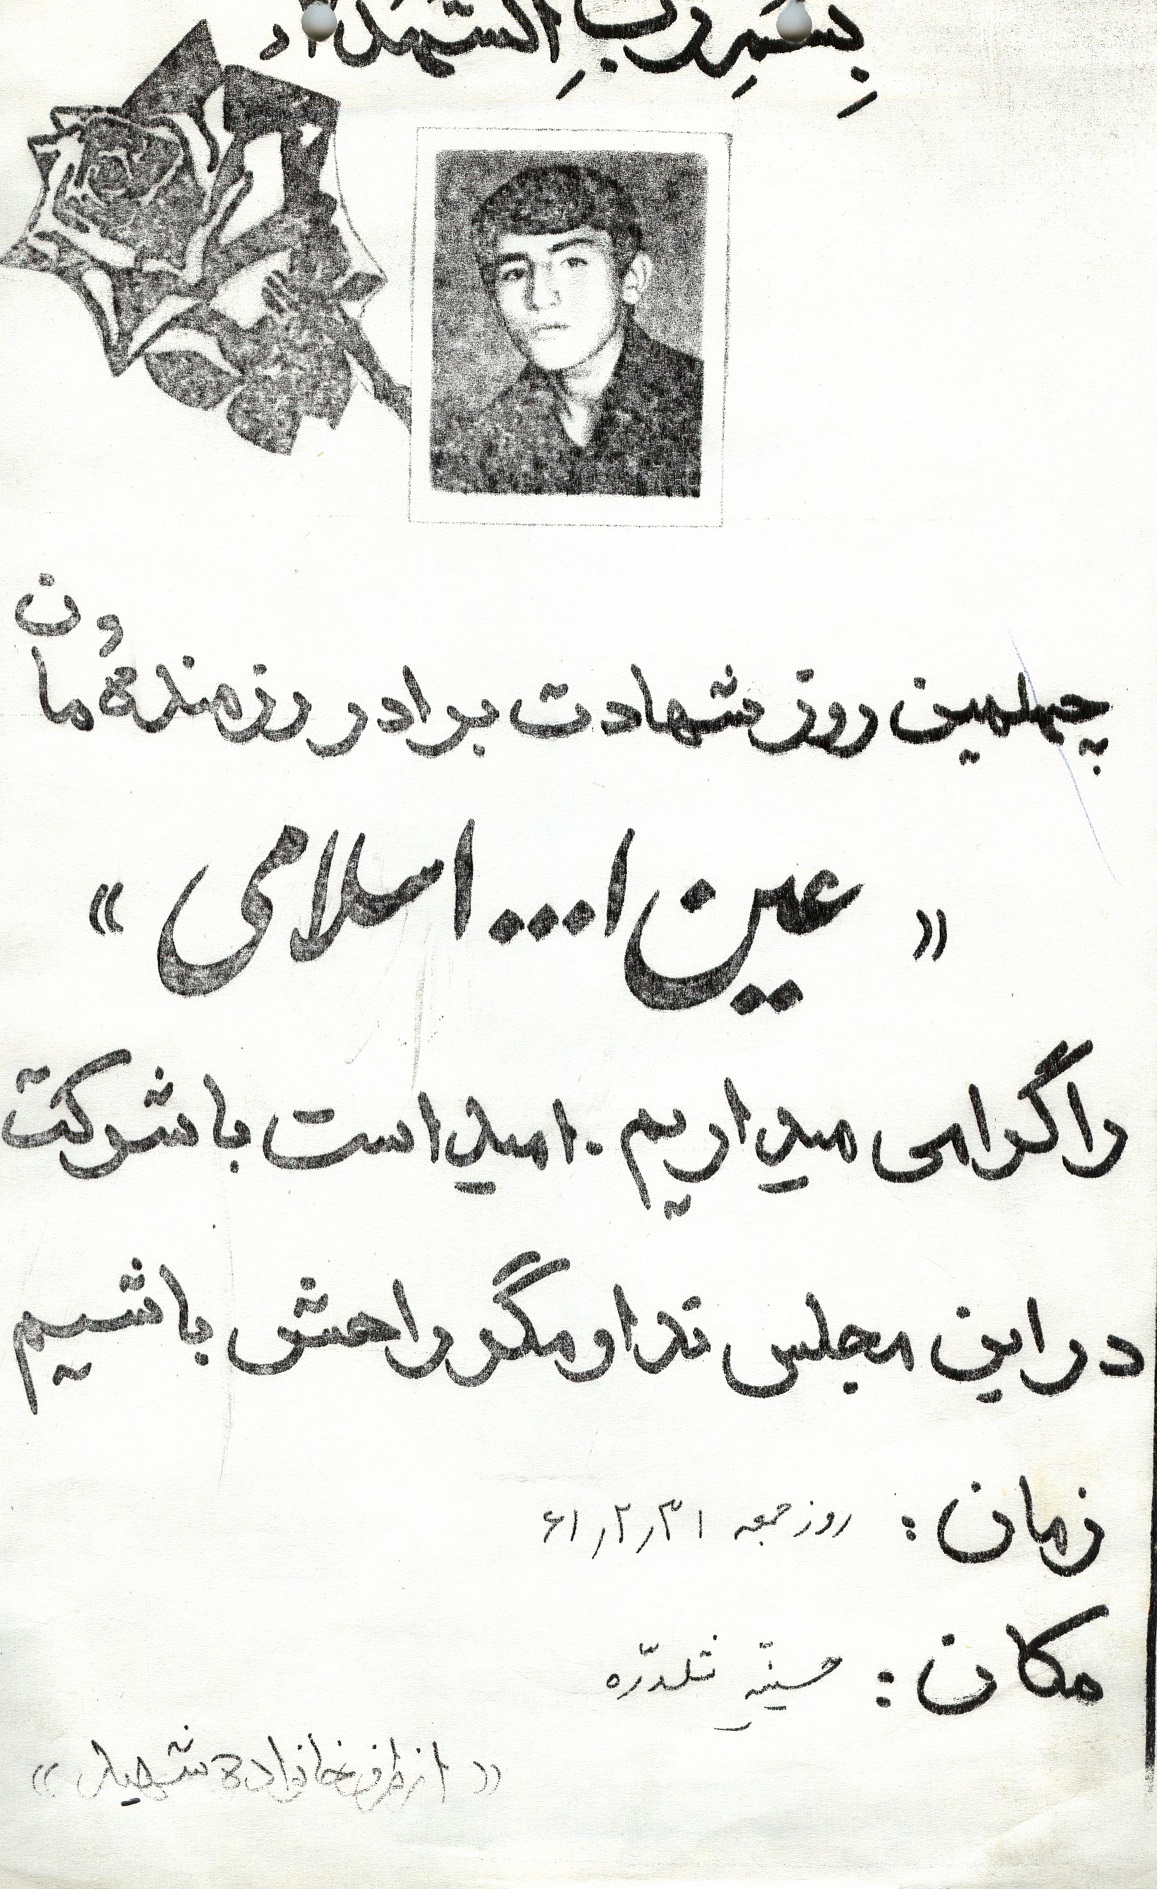 بِسمِ رَبِ الشهداء
چهلمین روز شهادت برادر رزمندهٔ ما و ن
« عین ا... اسلامی »
را گرامی میداریم. امید است با شرکت
در این مجلس تداومگر راهش باشیم
زمان: روز جمعه ۶۱٫۲٫۳۱
مکان: حسینیّهِ تلدرّه
«از طرف خانواده شهید»